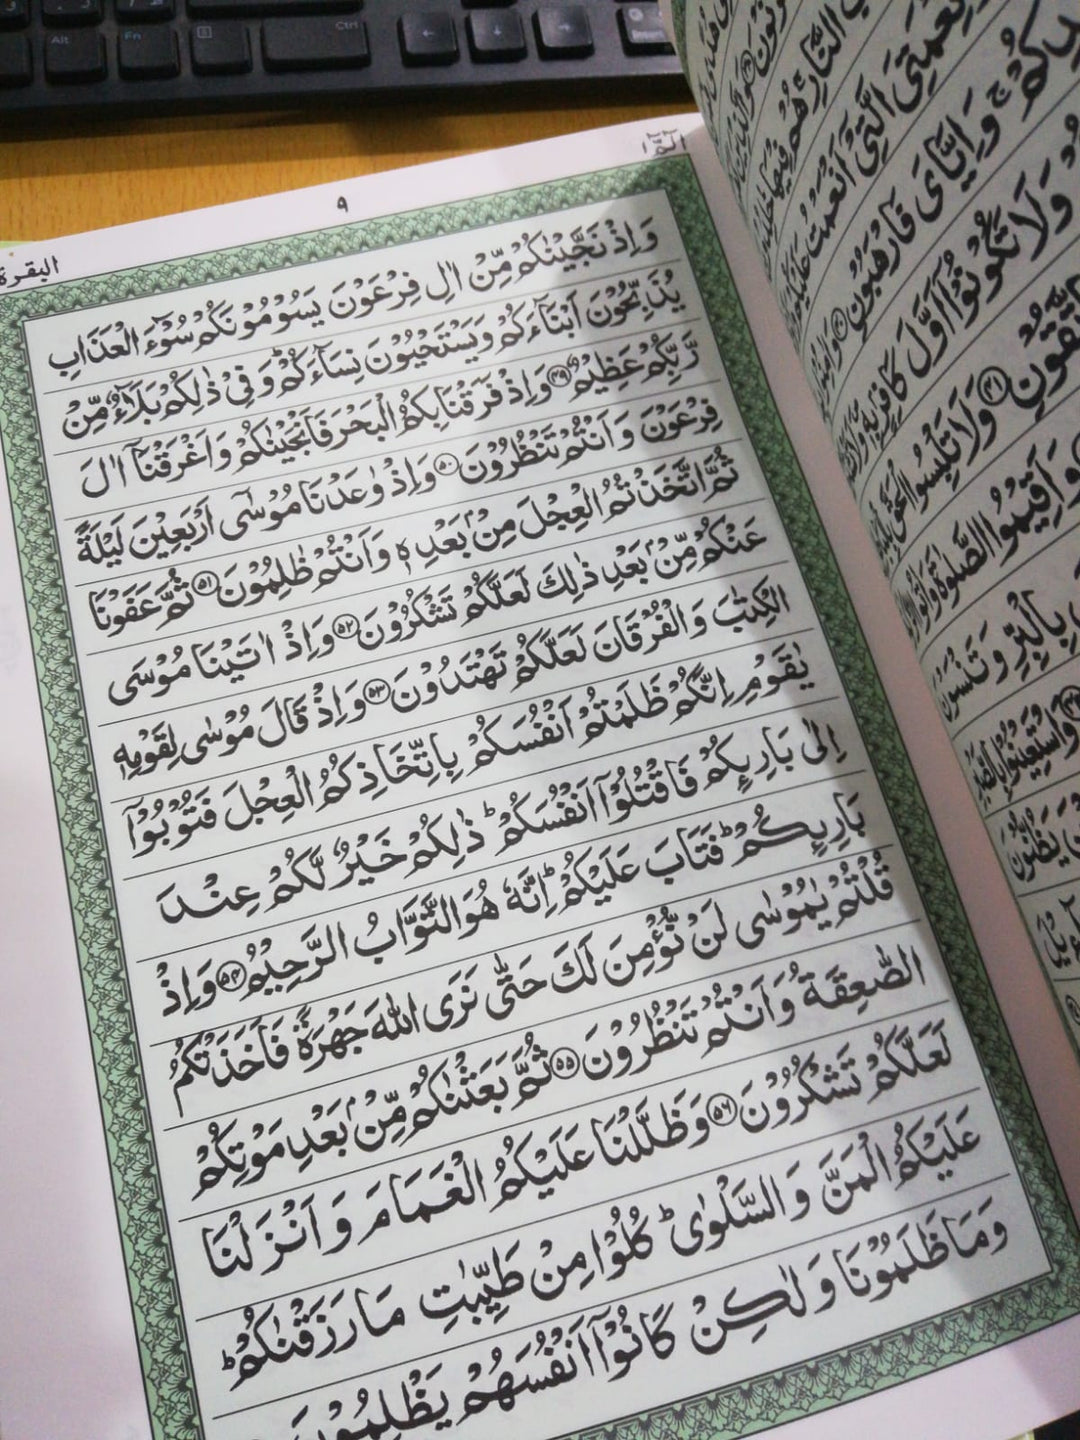 Alt
Fn
Ctrl
الٓمّٓ ١
٩
البقرة
وَاِذْ نَجَّيْنٰكُمْ مِّنْ اٰلِ فِرْعَوْنَ يَسُوْمُوْنَكُمْ سُوْٓءَ الْعَذَابِ
يُذَبِّحُوْنَ اَبْنَآءَكُمْ وَيَسْتَحْيُوْنَ نِسَآءَكُمْ ؕ وَفِيْ ذٰلِكُمْ بَلَآءٌ مِّنْ
رَّبِّكُمْ عَظِيْمٌ ﴿۴۹﴾ وَاِذْ فَرَقْنَا بِكُمُ الْبَحْرَ فَاَنْجَيْنٰكُمْ وَاَغْرَقْنَآ اٰلَ
فِرْعَوْنَ وَاَنْتُمْ تَنْظُرُوْنَ ﴿۵۰﴾ وَاِذْ وٰعَدْنَا مُوْسٰٓى اَرْبَعِيْنَ لَيْلَةً
ثُمَّ اتَّخَذْتُمُ الْعِجْلَ مِنْۢ بَعْدِهٖ وَاَنْتُمْ ظٰلِمُوْنَ ﴿۵۱﴾ ثُمَّ عَفَوْنَا
عَنْكُمْ مِّنْۢ بَعْدِ ذٰلِكَ لَعَلَّكُمْ تَشْكُرُوْنَ ﴿۵۲﴾ وَاِذْ اٰتَيْنَا مُوْسَى
الْكِتٰبَ وَالْفُرْقَانَ لَعَلَّكُمْ تَهْتَدُوْنَ ﴿۵۳﴾ وَاِذْ قَالَ مُوْسٰى لِقَوْمِهٖ
يٰقَوْمِ اِنَّكُمْ ظَلَمْتُمْ اَنْفُسَكُمْ بِاتِّخَاذِكُمُ الْعِجْلَ فَتُوْبُوْٓا
اِلٰى بَارِىِٕكُمْ فَاقْتُلُوْٓا اَنْفُسَكُمْ ؕ ذٰلِكُمْ خَيْرٌ لَّكُمْ عِنْدَ
بَارِىِٕكُمْ ؕ فَتَابَ عَلَيْكُمْ ؕ اِنَّهٗ هُوَ التَّوَّابُ الرَّحِيْمُ ﴿۵۴﴾ وَاِذْ
قُلْتُمْ يٰمُوْسٰى لَنْ نُّؤْمِنَ لَكَ حَتّٰى نَرَى اللّٰهَ جَهْرَةً فَاَخَذَتْكُمُ
الصّٰعِقَةُ وَاَنْتُمْ تَنْظُرُوْنَ ﴿۵۵﴾ ثُمَّ بَعَثْنٰكُمْ مِّنْۢ بَعْدِ مَوْتِكُمْ
لَعَلَّكُمْ تَشْكُرُوْنَ ﴿۵۶﴾ وَظَلَّلْنَا عَلَيْكُمُ الْغَمَامَ وَاَنْزَلْنَا
عَلَيْكُمُ الْمَنَّ وَالسَّلْوٰى ؕ كُلُوْا مِنْ طَيِّبٰتِ مَا رَزَقْنٰكُمْ ؕ
وَمَا ظَلَمُوْنَا وَلٰكِنْ كَانُوْٓا اَنْفُسَهُمْ يَظْلِمُوْنَ
النَّارِ هُمْ فِيْهَا
نِعْمَتِيَ الَّتِيْٓ اَنْعَمْتُ
وَاِيَّايَ فَارْهَبُوْنِ ﴿۴۰﴾
وَلَا تَكُوْنُوْٓا اَوَّلَ كَافِرٍۭ بِهٖ
﴿۴۱﴾ وَلَا تَلْبِسُوا
وَاَقِيْمُوا الصَّلٰوةَ
بِالْبِرِّ وَتَنْسَوْنَ
وَاسْتَعِيْنُوْا